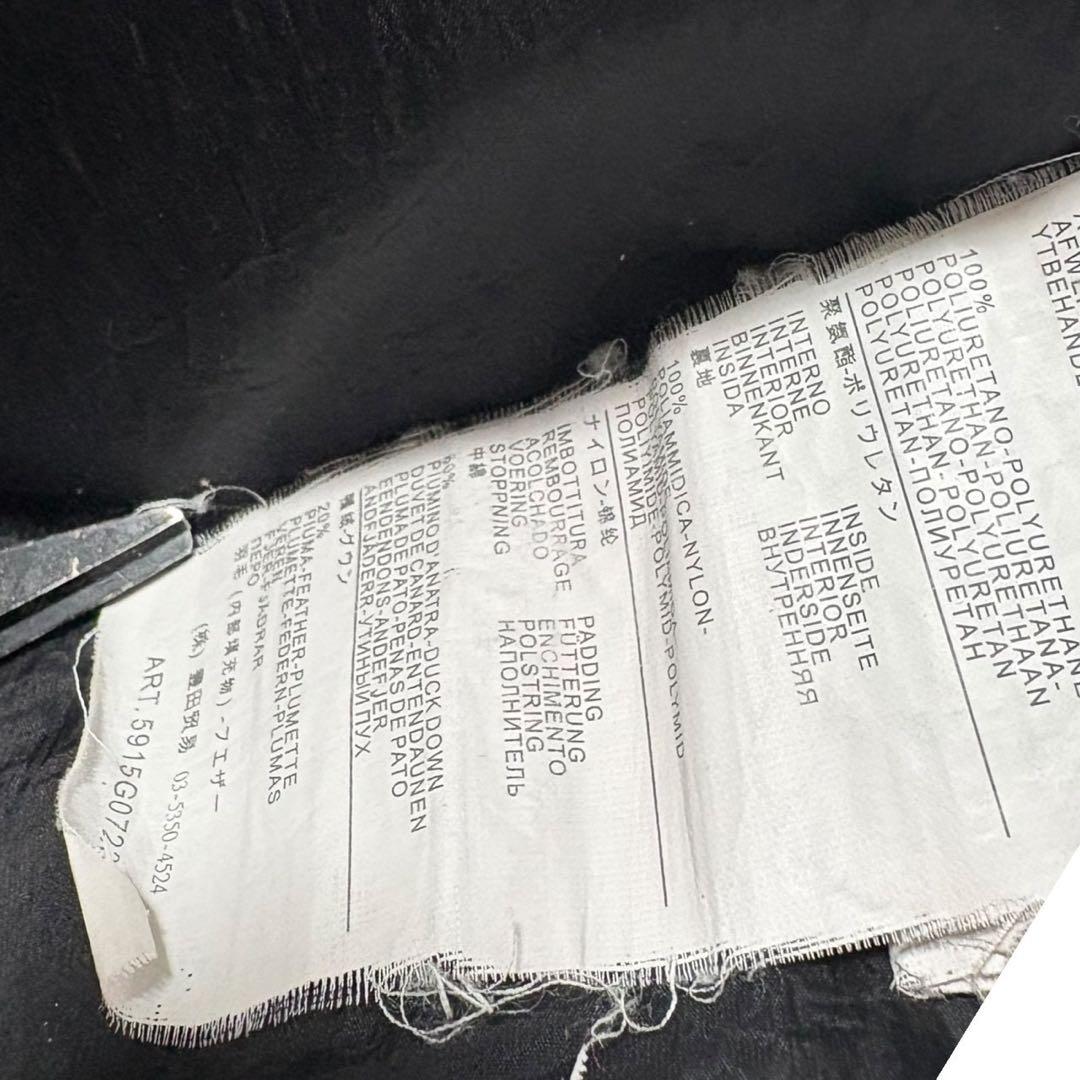 AFWE
YTBEHANDE
100%
POLIURETANO-POLYURETHAN
POLYURETHAN-POLIURETANA-
POLIURETANO-POLYURETHAAN
POLYURETHAN-POLYURETAN
POLYURETAN-ПОЛИУРЕТАН
聚氨酯-ポリウレタン
INTERNO INSIDE
INTERNE INNENSEITE
INTERIOR INTERIOR
BINNENKANT INDERSIDE
INSIDA ВНУТРЕННЯЯ
裏地
100%
POLIAMMIDICA-NYLON-
POLYIMIDE-POLYMID-POLYMID
ПОЛИАМИД
ナイロン-锦纶
IMBOTTITURA PADDING
REMBOURRAGE FÜTTERUNG
ACOLCHADO ENCHIMENTO
VOERING POLSTRING
STOPPNING НАПОЛНИТЕЛЬ
中綿
PIUMINO D'ANATRA-DUCK DOWN
DUVET DE CANARD-ENTENDAUNEN
PLUMA DE PATO-PENAS DE PATO
EENDENDONS-ANDEFJER
ANDFJÄDERR-УТИНЫЙ ПУХ
20%
PIUMA-FEATHER-PLUMETTE
PLUMETTE-FEDERN-PLUMAS
VEREN
ПЕРО
羽毛(内部填充物)-フエザー
(株) 豊田貿易 03-5350-4524
ART. 5915G072